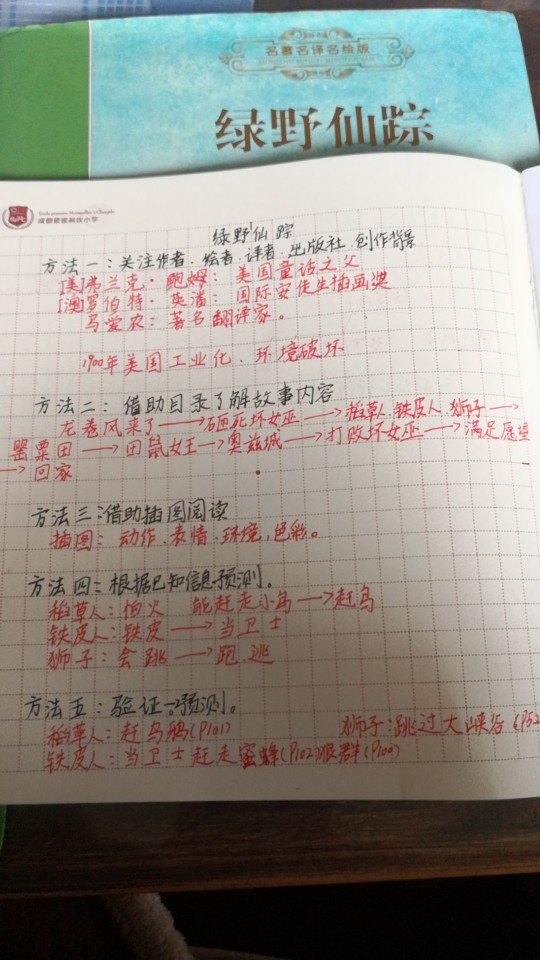 名著名译名绘版
绿野仙踪
绿野仙踪
方法一:关注作者、绘者、译者、出版社、创作背景
[美]弗兰克·鲍姆:美国童话之父
[澳]罗伯特·英潘:国际安徒生插画奖
马爱农:著名翻译家。
1900年美国工业化、环境破坏
方法二:借助目录了解故事内容
龙卷风来了→砸死坏女巫→稻草人、铁皮人、狮子→
罂粟田→田鼠女王→奥兹城→打败坏女巫→满足愿望
→回家
方法三:借助插图阅读
插图:动作、表情、环境、色彩。
方法四:根据已知信息预测。
稻草人:怕火 能赶走小鸟→赶鸟
铁皮人:铁皮→当卫士
狮子:会跳→跑、逃
方法五:验证预测。
稻草人:赶乌鸦(P101) 狮子:跳过大峡谷(P52
铁皮人:当卫士赶走蜜蜂(P102)狼群(P100)